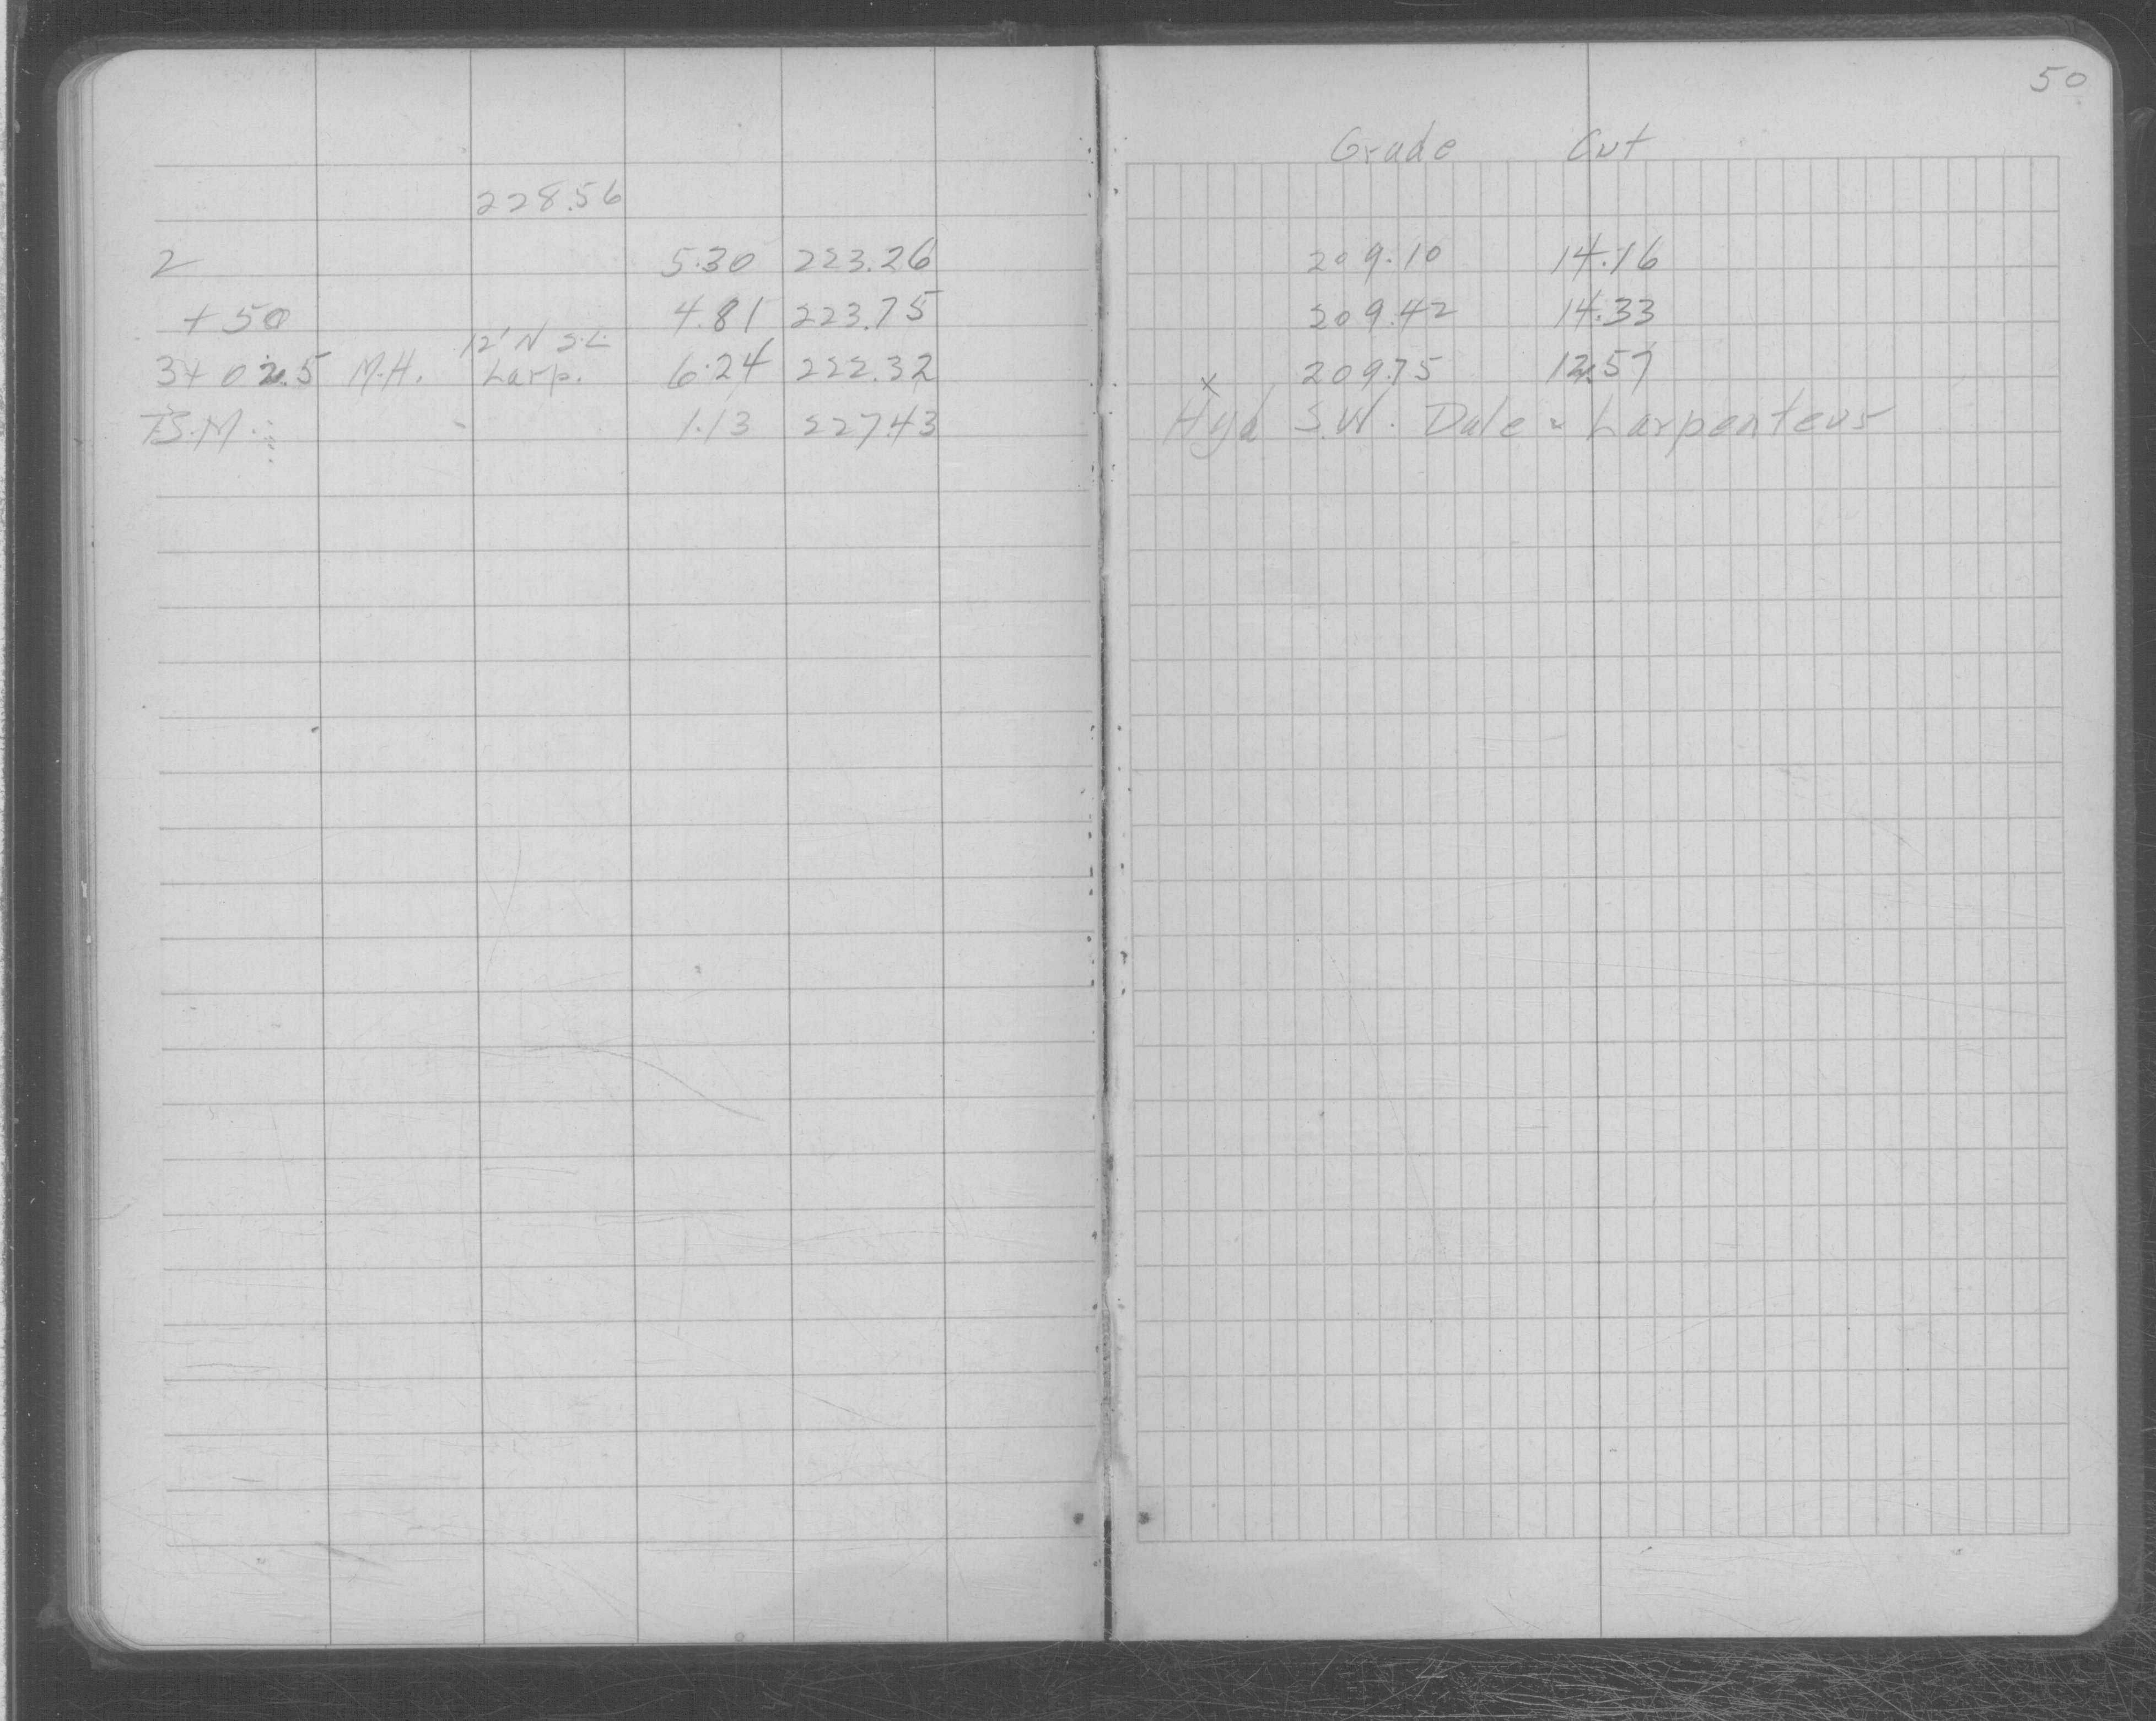 50
Grade Cut
228.56
2 5.30 223.26 209.10 14.16
+50 4.81 223.75 209.42 14.33
12' N S.L.
3+02.5 M.H. Larp. 6.24 222.32 209.75 12.57
B.M. 1.13 227.43 Hyd S.W. Dale & Larpenteur